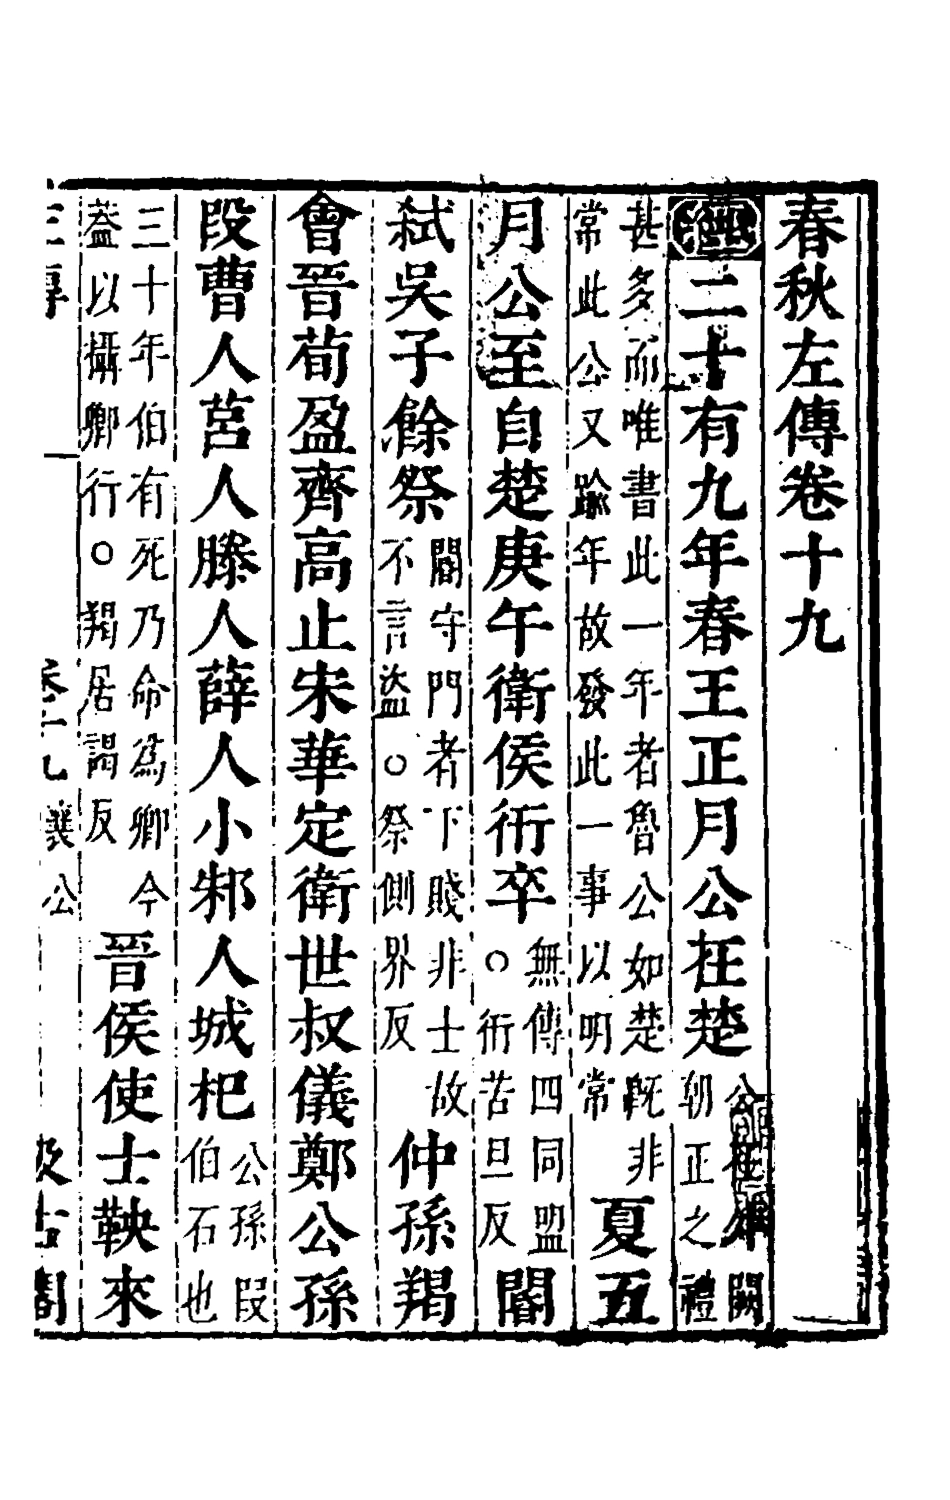 春秋左傳卷十九
經二十有九年春王正月公在楚公在外闕朝正之禮
甚多而唯書此一年者魯公如楚既非常此公又踰年故發此一事以明常夏五
月公至自楚庚午衛侯衎卒無傳四同盟○衎苦旦反閽
弒吳子餘祭閽守門者下賤非士故不言盜○祭側界反仲孫羯
會晉荀盈齊高止宋華定衛世叔儀鄭公孫
段曹人莒人滕人薛人小邾人城杞公孫段伯石也
三十年伯有死乃命爲卿今葢以攝卿行○羯居謁反晉侯使士鞅來
左傳 一 卷十九 襄公 汲古閣